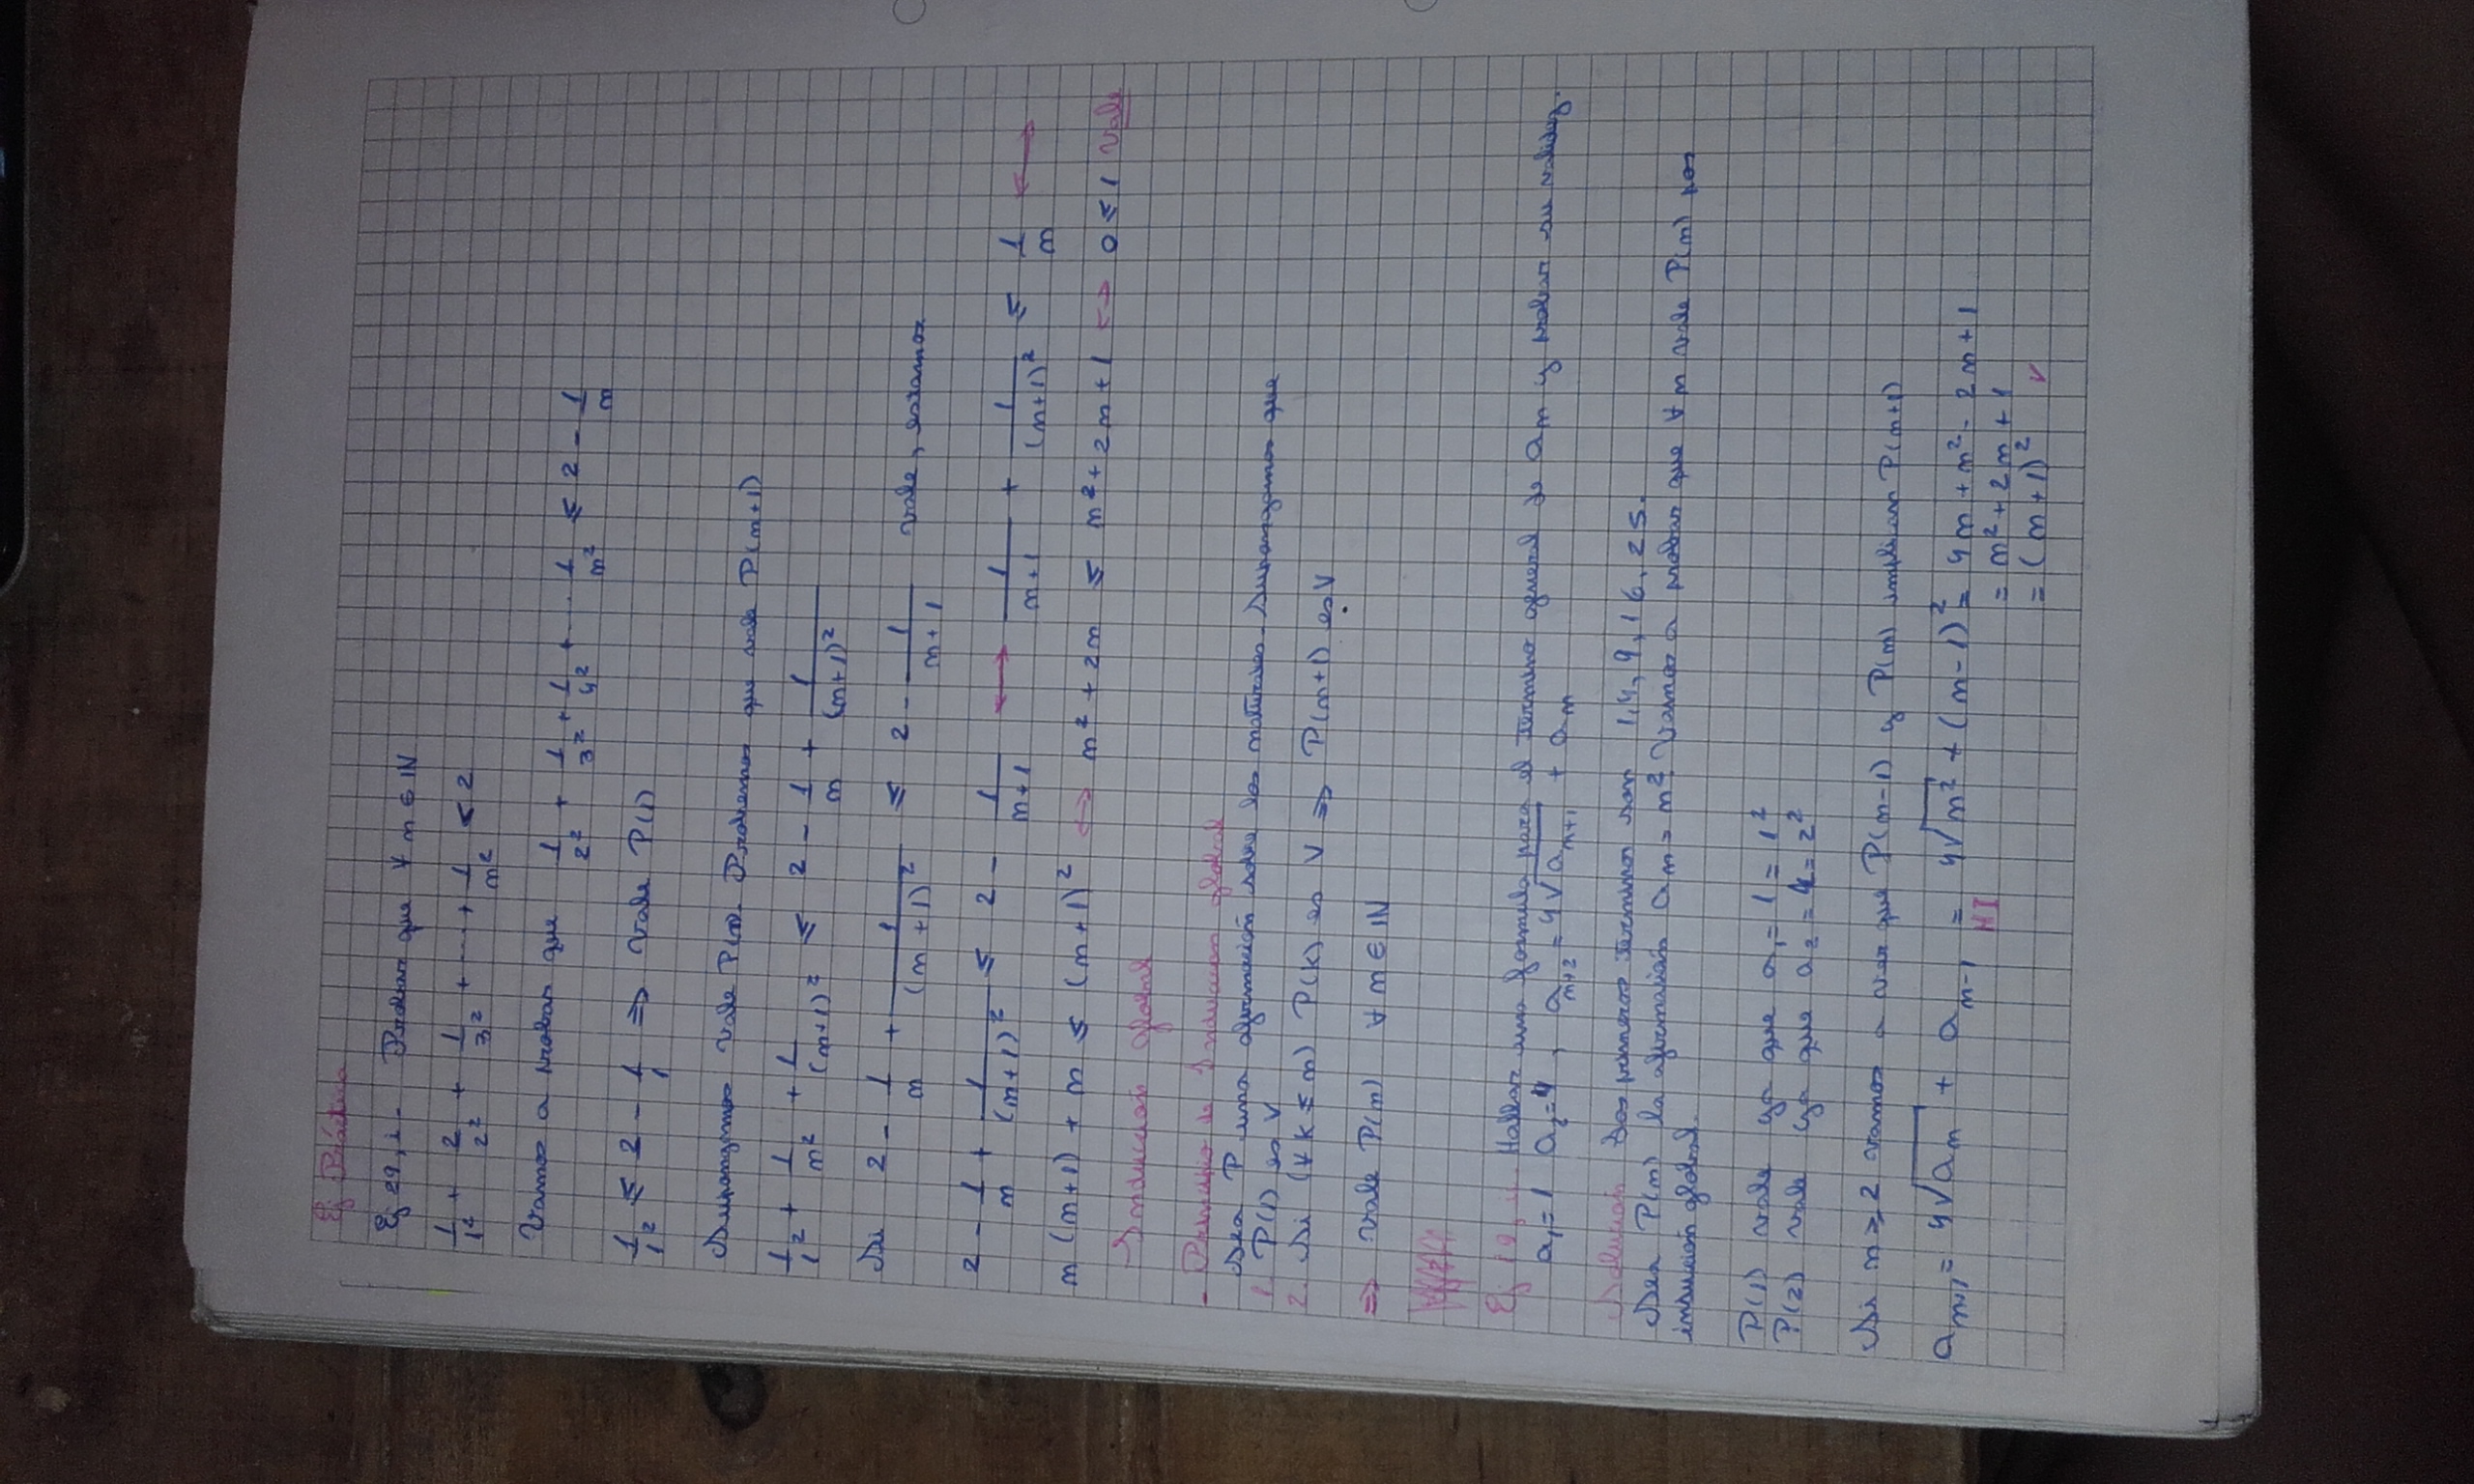 Ej Práctica
Ej 29, i - Probar que ∀ n ∈ ℕ
1/1² + 2/2² + 1/3² + ... + 1/n² < 2
Vamos a probar que 1/2² + 1/3² + 1/4² + ... 1/n² ≤ 2 - 1/n
1/1² ≤ 2 - 1/1 ⇒ Vale P(1)
Supongamos vale P(n). Probemos que vale P(n+1)
1/1² + 1/n² + 1/(n+1)² ≤ 2 - 1/n + 1/(n+1)²
Si 2 - 1/n + 1/(n+1)² ≤ 2 - 1/(n+1) vale, estamos
2 - 1/n + 1/(n+1)² ≤ 2 - 1/(n+1) ↔ 1/(n+1) + 1/(n+1)² ≤ 1/n ↔
n(n+1) + n ≤ (n+1)² ↔ n² + 2n ≤ n² + 2n + 1 ↔ 0 ≤ 1 Vale
Inducción global
- Principio de Inducción global
Sea P una afirmación sobre los naturales. Supongamos que
1. P(1) es V
2. Si (∀ k ≤ n) P(k) es V ⇒ P(n+1) es V
⇒ Vale P(n) ∀ n ∈ ℕ
Ej 19, i. Hallar una formula para el termino general de aₙ y probar su validez.
a₁ = 1 a₂ = 4, aₙ₊₂ = 4√aₙ₊₁ + aₙ
Solución Los primeros terminos son 1, 4, 9, 16, 25.
Sea P(n) la afirmación aₙ = n². Vamos a probar que ∀ n vale P(n) por
inducción global.
P(1) vale ya que a₁ = 1 = 1²
P(2) vale ya que a₂ = 4 = 2²
Si n ≥ 2 vamos a ver que P(n-1) y P(n) implican P(n+1)
aₙ₊₁ = 4√aₙ + aₙ₋₁ = 4√n² + (n-1)² = 4n + n² - 2n + 1
HI
= n² + 2n + 1
= (n+1)² ✓